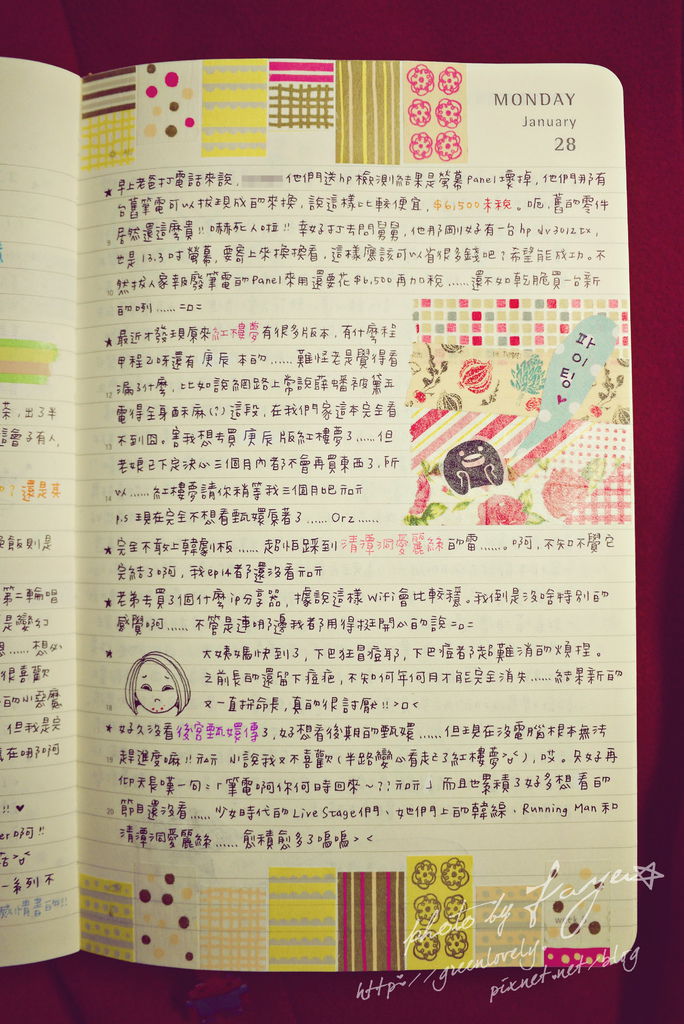 MONDAY
January
28
★早上老爸打電話來說, 他們送hp檢測結果是螢幕Panel壞掉, 他們那有
台舊筆電可以拔現成的來換, 說這樣比較便宜, $6,500未稅。呃, 舊的零件
居然還這麼貴!! 嚇死人啦!! 幸好打去問舅舅, 他那剛好有一台hp dv3012tx,
也是13.3吋螢幕, 要寄上來換換看, 這樣應該可以省很多錢吧?希望能成功。不
然拔人家報廢筆電的Panel來用還要花$6,500再加稅......還不如乾脆買一台新
的咧......=口=
★最近才發現原來紅樓夢有很多版本, 有什麼程
甲程乙咪還有庚辰本的......難怪老是覺得看
漏了什麼, 比如說網路上常說薛蟠被黛玉
電得全身酥麻(?)這段, 在我們家這本完全看
不到囧。害我想去買庚辰版紅樓夢了......但
老娘已下定決心三個月內都不會再買東西了, 所
以......紅樓夢請你稍等我三個月吧
p.s 現在完全不想看甄嬛原著了......Orz......
파이팅♥
★完全不敢上韓劇板......超怕踩到清潭洞愛麗絲的雷......。啊, 不知不覺它
完結了啊, 我ep14都還沒看
★老弟去買了個什麼ip分享器, 據說這樣Wifi會比較穩。我倒是沒啥特別的
感覺啊......不管是連哪邊我都用得挺開心的說=口=
★大姨媽快到了, 下巴狂冒痘耶, 下巴痘都超難消的煩捏。
之前長的還留下痘疤, 不知何年何月才能完全消失......結果新的
又一直拚命長, 真的很討厭!! >口<
★好久沒看後宮甄嬛傳了, 好想看後期的甄嬛......但現在沒電腦根本無法
趕進度嘛!! 小說我又不喜歡(半路變心看起了紅樓夢>"<), 哎。只好再
仰天長嘆一句:「筆電啊你何時回來~??」而且也累積了好多想看的
節目還沒看......少女時代的Live Stage們、她們上的韓綜、Running Man和
清潭洞愛麗絲......愈積愈多了嗚嗚> <
photo by Kaye☆
http://greenlovely.
pixnet.net/blog